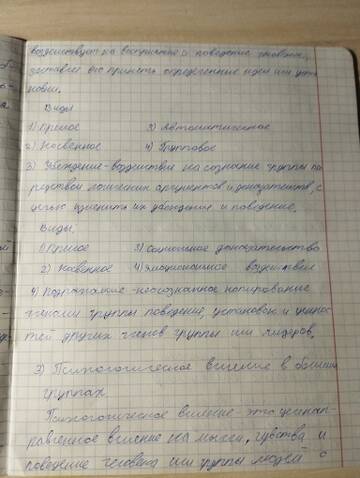 воздействует на восприятие и поведение человека,
заставляя его принять определенные идеи или уста
новки.
Виды
1) Прямое 3) Автоматическое
2) Косвенное 4) Групповое
3) Убеждение - воздействие на сознание группы по
средством логических аргументов и доказательств, с
целью изменить их убеждения и поведение.
Виды.
1) Прямое 3) социальное доказательство
2) косвенное 4) эмоциональное воздействие
4) Подражание - неосознанное копирование
членами группы поведения, установок и ценнос
тей других членов группы или лидеров.
3) Психологическое влияние в больших
группах.
Психологическое влияние - это целенап
равленное влияние на мысли, чувства и
поведение человека или группы людей с